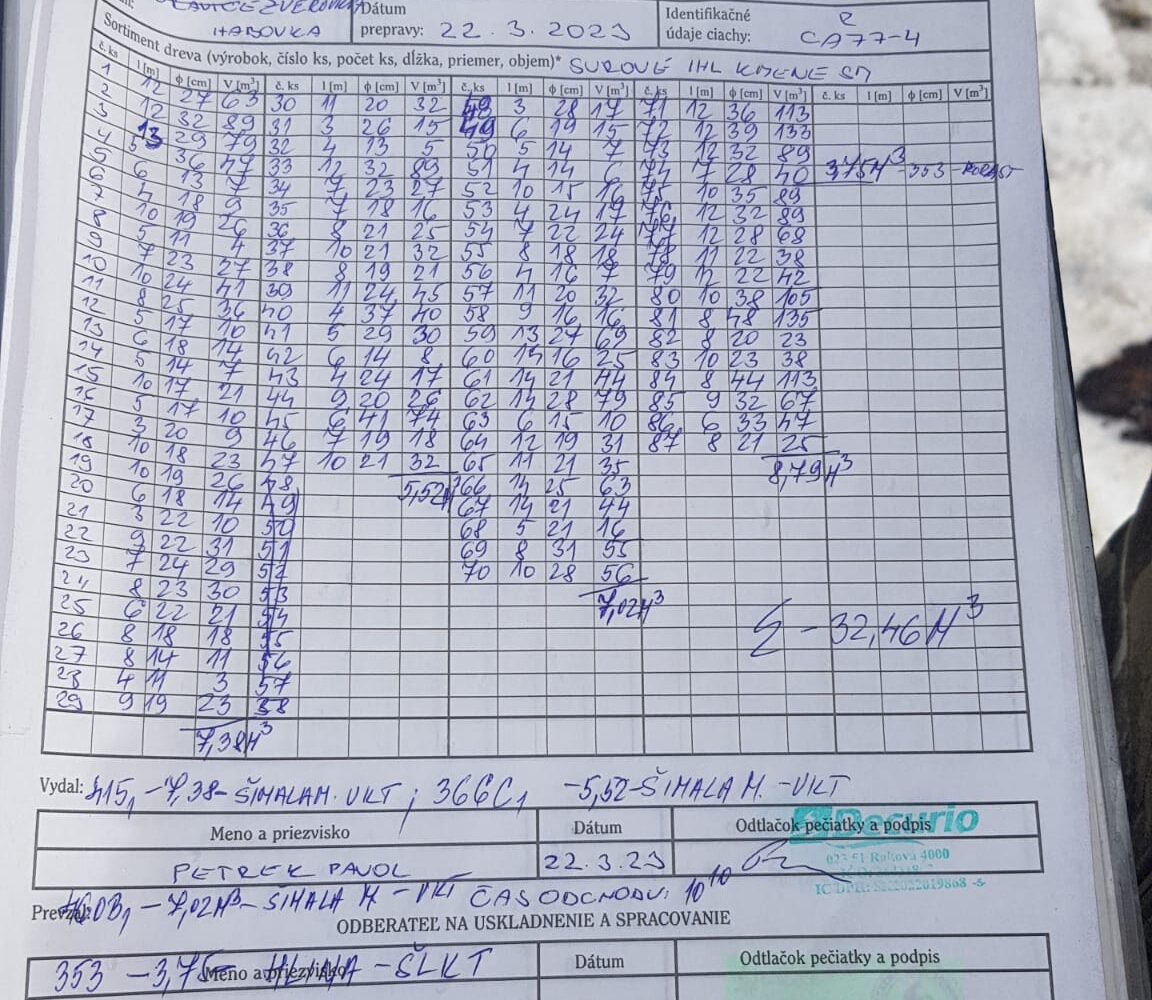 HABOVKA
Dátum
prepravy: 22. 3. 2023
Identifikačné
údaje ciachy: R
CA77-4
Sortiment dreva (výrobok, číslo ks, počet ks, dĺžka, priemer, objem)* SUROVÉ IHL KMENE SM
č. ks l [m] ϕ [cm] V [m³] č. ks l [m] ϕ [cm] V [m³] č. ks l [m] ϕ [cm] V [m³] č. ks l [m] ϕ [cm] V [m³] č. ks l [m] ϕ [cm] V [m³]
1 12 27 63 30 11 20 32 48 3 28 17 71 12 36 113
2 12 32 89 31 3 26 15 49 6 19 15 72 12 39 133
3 13 29 79 32 4 13 5 50 5 14 7 73 12 32 89
4 5 36 47 33 12 32 89 51 4 14 6 74 7 28 40 -353
5 6 13 7 34 7 23 27 52 10 15 16 75 10 35 89
6 4 18 9 35 7 18 16 53 4 24 17 76 12 32 89
7 10 19 26 36 8 21 25 54 7 22 24 77 12 28 68
8 5 11 4 37 10 21 32 55 8 18 18 78 11 22 38
9 7 23 27 38 8 19 21 56 4 16 7 79 12 22 42
10 10 24 41 39 11 24 45 57 11 20 32 80 10 38 105
11 8 25 36 40 4 37 40 58 9 16 16 81 8 48 135
12 5 17 10 41 5 29 30 59 13 27 69 82 8 20 23
13 6 18 14 42 6 14 8 60 14 16 25 83 10 23 38
14 5 14 7 43 4 24 17 61 14 21 44 84 8 44 113
15 10 17 21 44 9 20 26 62 14 28 79 85 9 32 67
16 5 17 10 45 6 41 74 63 6 15 10 86 6 33 47
17 3 20 9 46 7 19 18 64 12 19 31 87 8 21 25
18 10 18 23 47 10 21 32 65 11 21 35 8,79M³
19 10 19 26 48 5,52M³ 66 14 25 63
20 6 18 14 49 67 14 21 44
21 3 22 10 50 68 5 21 16
22 9 22 31 51 69 8 31 55
23 7 24 29 52 70 10 28 56
24 8 23 30 53 7,02M³
25 6 22 21 54 Σ - 32,46M³
26 8 18 18 55
27 8 14 11 56
28 4 11 3 57
29 9 19 23 58
7,38M³
Vydal: 415, -7,38- ŠIMALA M. VKT ; 366C, -5,52-ŠIMALA M. -VKT
Meno a priezvisko Dátum Odtlačok pečiatky a podpis
PETREK PAVOL 22.3.23
023 51 Raková 4000
Prevzal: -7,02M³- ŠIMALA M -VKT ČAS ODCHODU: 10¹⁰
ODBERATEĽ NA USKLADNENIE A SPRACOVANIE
Meno a priezvisko Dátum Odtlačok pečiatky a podpis
353 -3,75- -ŠLKT